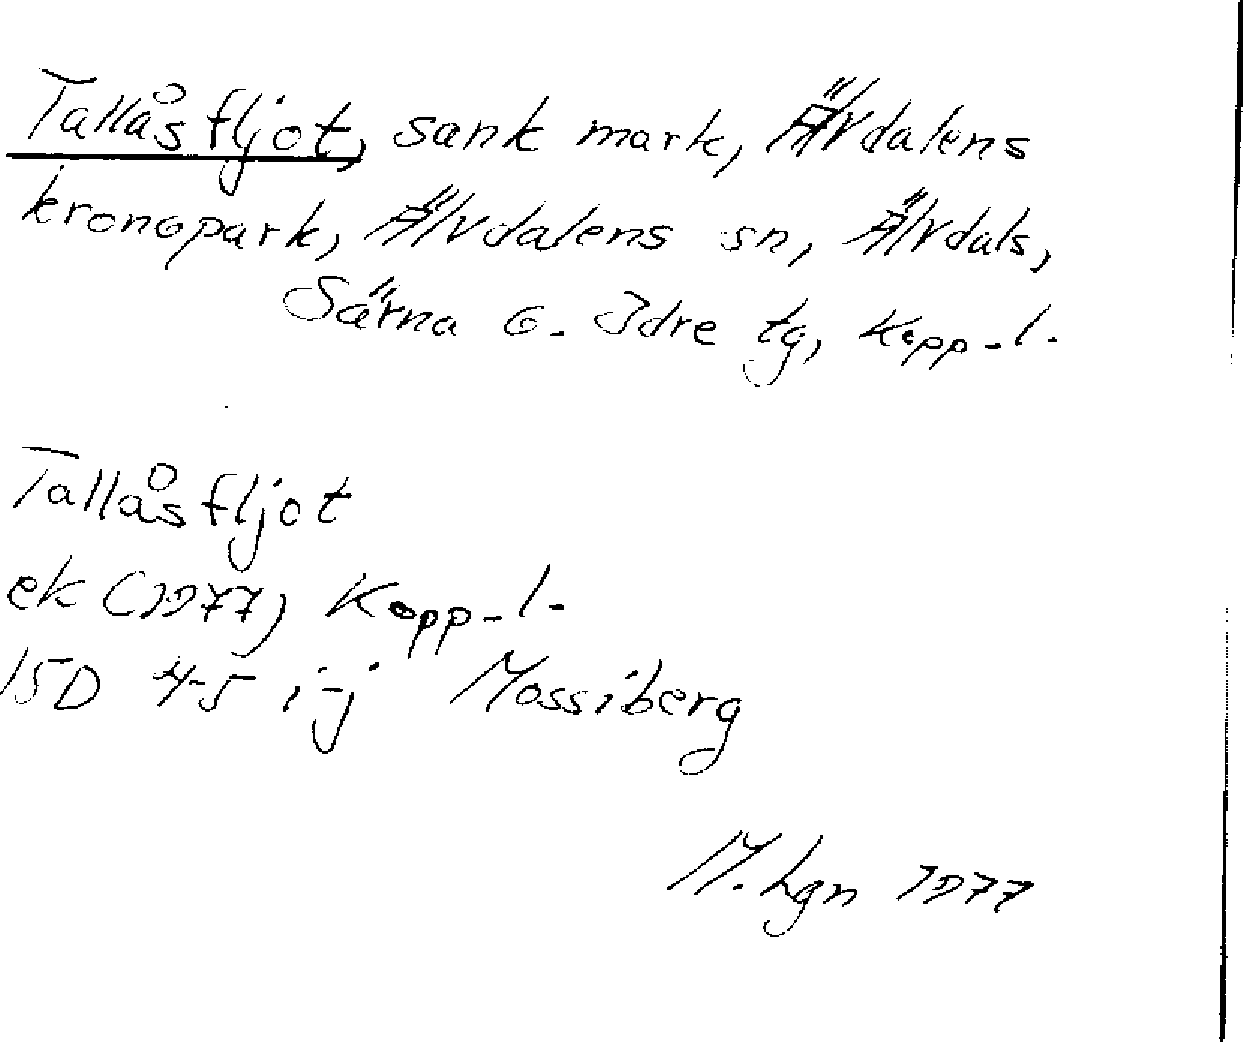 Tallåsfljot, sank mark, Älvdalens
kronopark, Älvdalens sn, Älvdals,
Särna o. Idre tg, Kopp.l.
Tallåsfljot
ek (1977) Kopp.l.
15D 4-5 i-j Mossiberg
M. Lgn 1977